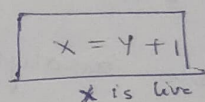 x = y + 1
x is live